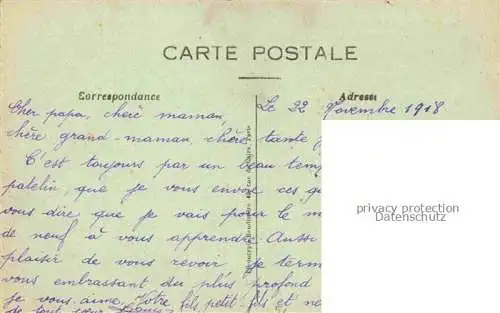 CARTE POSTALE
Correspondance
Adresse
Le 22 Novembre 1918
Cher papa, chère maman,
chère grand-maman, chère tante
C'est toujours par un beau tem
patelin, que je vous envoie ces
vous dire que je vais pour le m
de neuf à vous apprendre. Aussi
plaisir de vous revoir, je term
vous embrassant du plus profond
je vous aime. Votre fils, petit-fils et ne
de tout cœur
privacy protection
Datenschutz